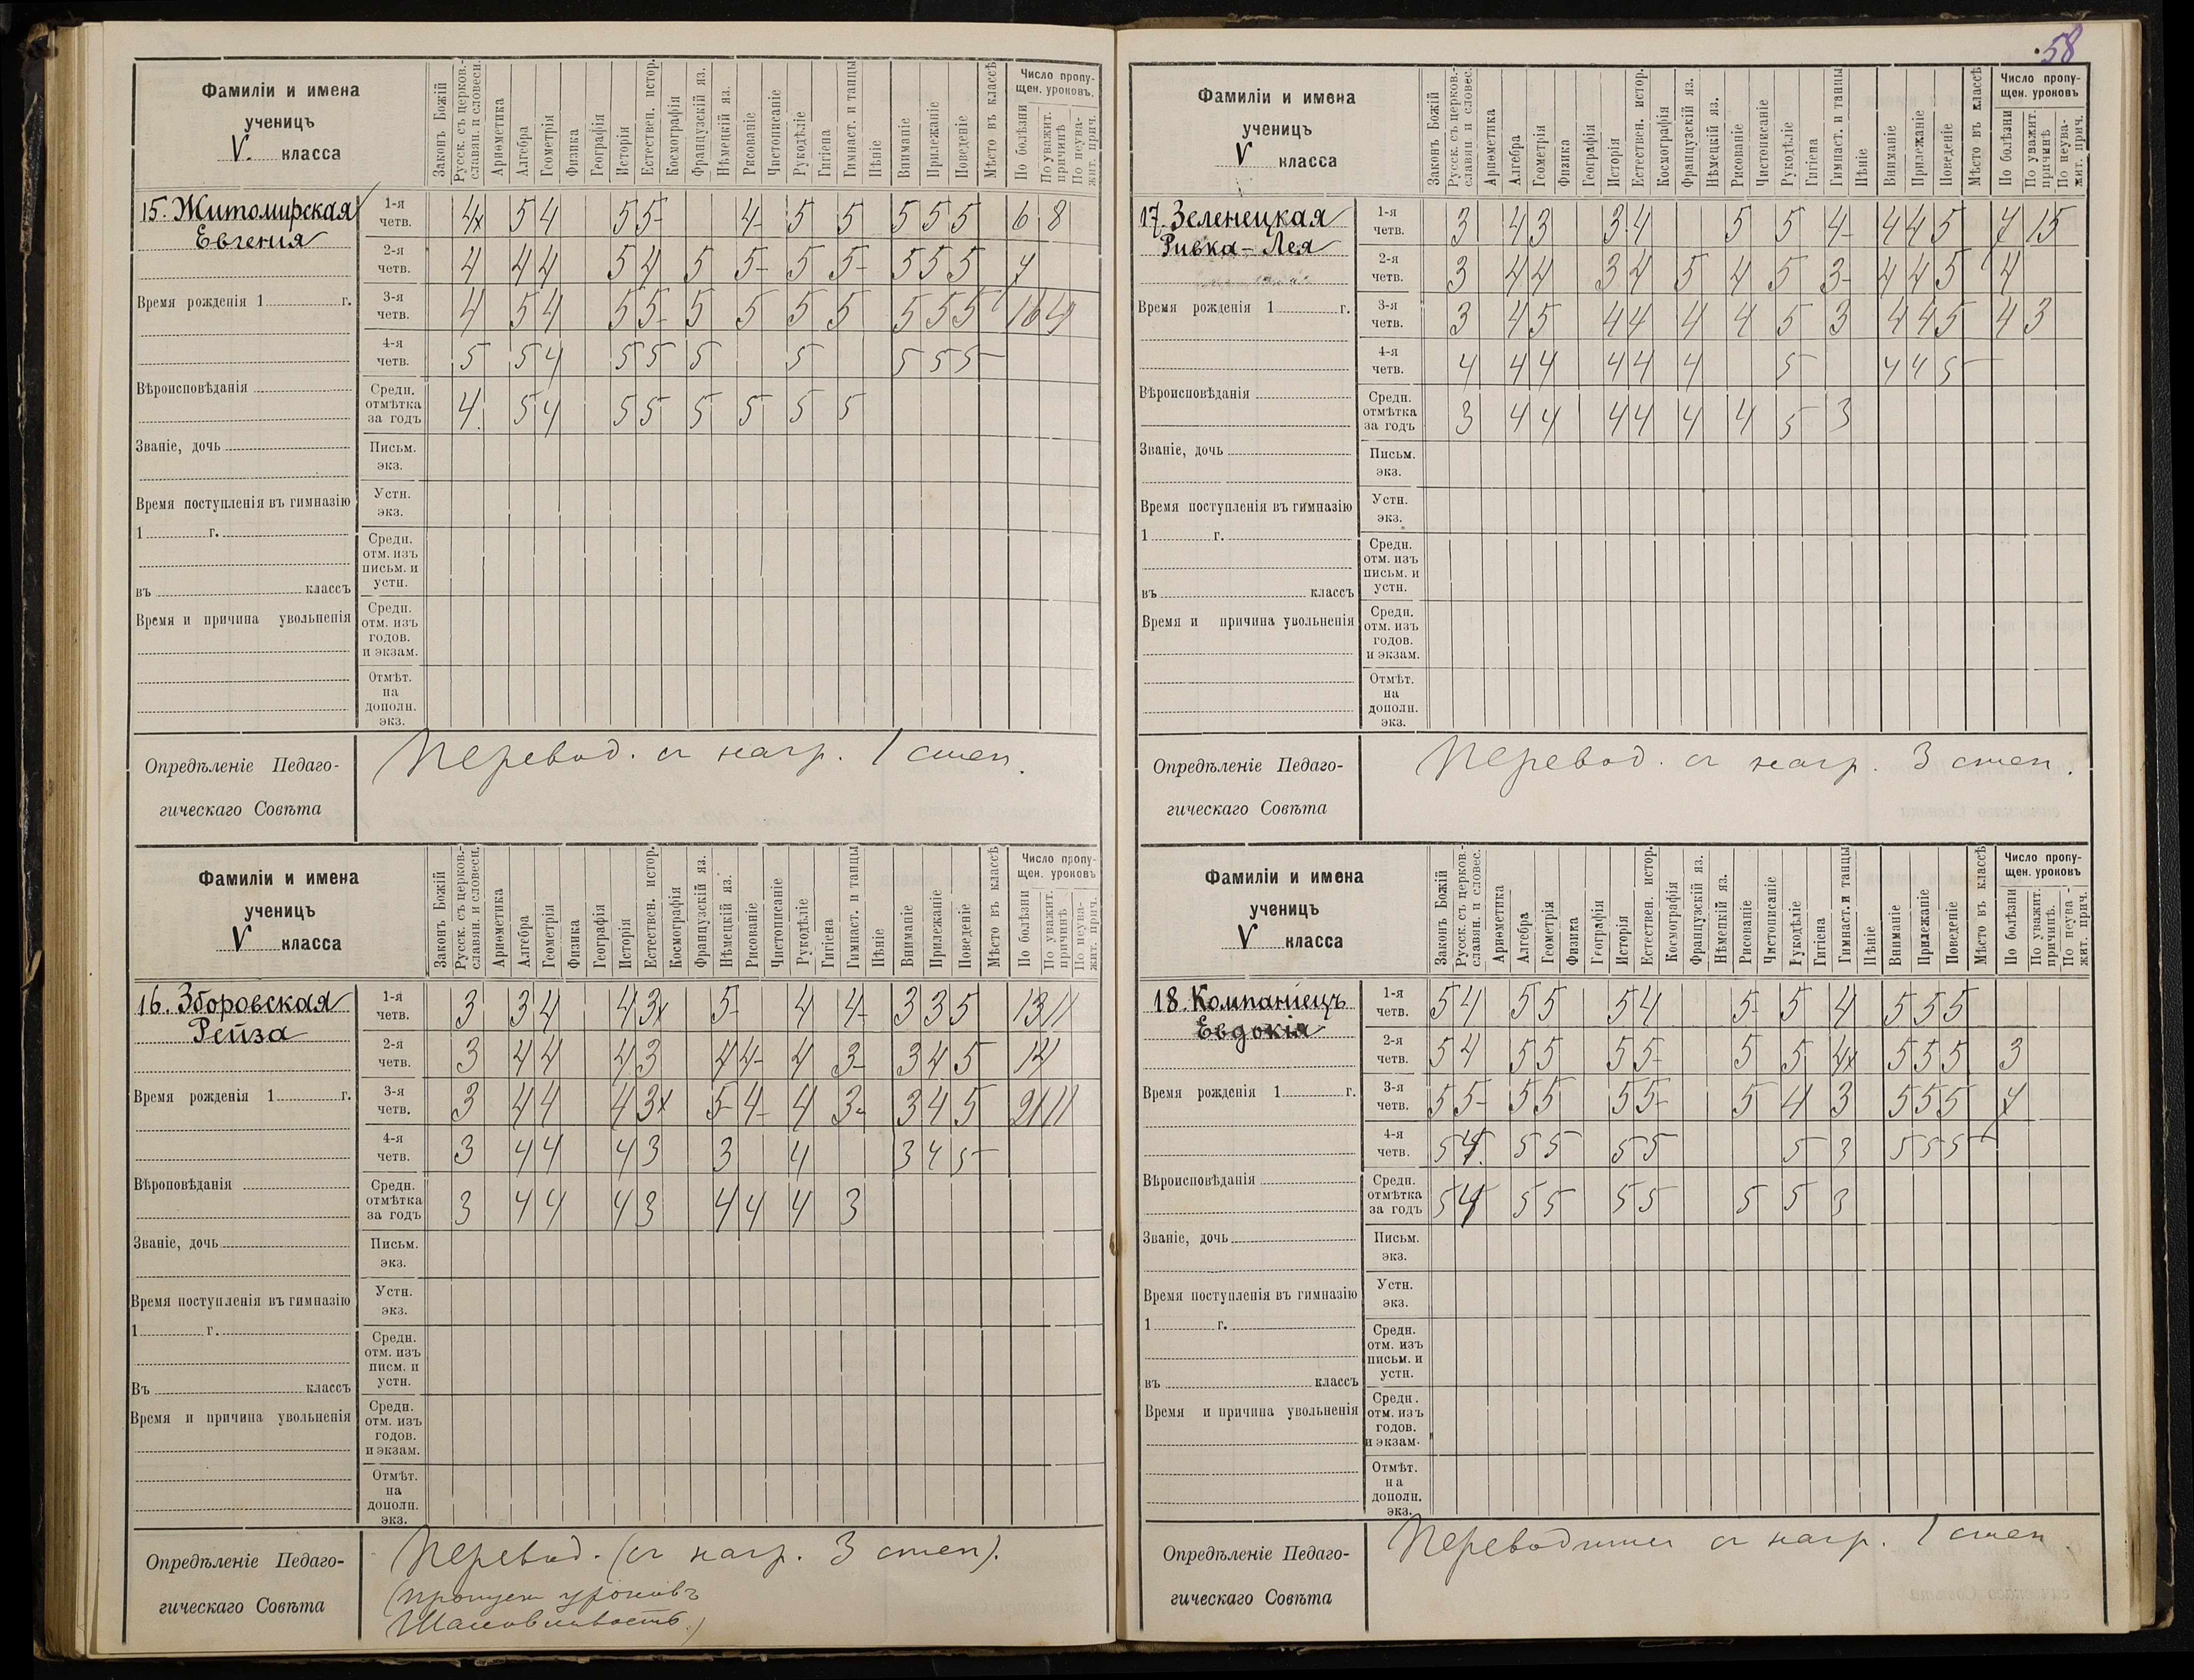 58
Фамиліи и имена
ученицъ
V. класса
Законъ Божій
Русск. съ церков.-
славян. и словесн.
Ариѳметика
Алгебра
Геометрія
Физика
Географія
Исторія
Естествен. истор.
Космографія
Французскій яз.
Нѣмецкій яз.
Рисованіе
Чистописаніе
Рукодѣліе
Гигіена
Гимнаст. и танцы
Пѣніе
Вниманіе
Прилежаніе
Поведеніе
Мѣсто въ классѣ
Число пропу-
щен. уроковъ.
По болѣзни
По уважит.
причинѣ
По неува-
жит. прич.
15. Житомирская
Евгенія
Время рожденія 1 г.
Вѣроисповѣданія
Званіе, дочь
Время поступленія въ гимназію
1 г.
въ классъ
Время и причина увольненія
1-я четв. 4х 5 4 5 5- 4- 5 5 5 5 5 6 8
2-я четв. 4 4 4 5 4 5 5- 5 5- 5 5 5 7
3-я четв. 4 5 4 5 5- 5 5 5 5 5 5 5 16 4
4-я четв. 5 5 4 5 5 5 5 5 5 5
Средн. отмѣтка за годъ 4. 5 4 5 5 5 5 5 5
Письм. экз.
Устн. экз.
Средн. отм. изъ письм. и устн.
Средн. отм. изъ годов. и экзам.
Отмѣт. на дополн. экз.
Опредѣленіе Педаго-
гическаго Совѣта
Перевод. съ нагр. 1 степ.
Фамиліи и имена
ученицъ
V класса
Законъ Божій
Русск. съ церков.-
славян. и словесн.
Ариѳметика
Алгебра
Геометрія
Физика
Географія
Исторія
Естествен. истор.
Космографія
Французскій яз.
Нѣмецкій яз.
Рисованіе
Чистописаніе
Рукодѣліе
Гигіена
Гимнаст. и танцы
Пѣніе
Вниманіе
Прилежаніе
Поведеніе
Мѣсто въ классѣ
Число пропу-
щен. уроковъ
По болѣзни
По уважит.
причинѣ
По неува-
жит. прич.
16. Зборовская
Рейза
Время рожденія 1 г.
Вѣроповѣданія
Званіе, дочь
Время поступленія въ гимназію
1 г.
Въ классъ
Время и причина увольненія
1-я четв. 3 3 4 4 3х 5- 4 4- 3 3 5 13 11
2-я четв. 3 4 4 4 3 4 4- 4 3- 3 4 5
3-я четв. 3 4 4 4 3х 5- 4- 4 3- 3 4 5
4-я четв. 3 4 4 4 3 3 4 3 4 5
Средн. отмѣтка за годъ 3 4 4 4 3 4 4 4 3
Письм. экз.
Устн. экз.
Средн. отм. изъ писм. и устн.
Средн. отм. изъ годов. и экзам.
Отмѣт. на дополн. экз.
Опредѣленіе Педаго-
гическаго Совѣта
Перевод. (съ нагр. 3 степ).
(пропуски уроковъ
Шаловливость.)
Фамиліи и имена
ученицъ
V класса
Законъ Божій
Русск. съ церков.-
славян и словес.
Ариѳметика
Алгебра
Геометрія
Физика
Географія
Исторія
Естествен. истор.
Космографія
Французскій яз.
Нѣмецкій яз.
Рисованіе
Чистописаніе
Рукодѣліе
Гигіена
Гимнаст. и танцы
Пѣніе
Вниманіе
Прилежаніе
Поведеніе
Мѣсто въ классѣ
Число пропу-
щен. уроковъ
По болѣзни
По уважит.
причинѣ
По неува-
жит. прич.
17. Зеленецкая
Ривка-Лея
Время рожденія 1 г.
Вѣроисповѣданія
Званіе, дочь
Время поступленія въ гимназію
1 г.
въ классъ
Время и причина увольненія
1-я четв. 3 4 3 3 4 5 5 4- 4 4 5 7 15
2-я четв. 3 4 4 3 4 5 4 5 3- 4 4 5 4
3-я четв. 3 4 5 4 4 4 4 5 3 4 4 5 4 3
4-я четв. 4 4 4 4 4 4 5 4 4 5
Средн. отмѣтка за годъ 3 4 4 4 4 4 4 5 3
Письм. экз.
Устн. экз.
Средн. отм. изъ письм. и устн.
Средн. отм. изъ годов. и экзам.
Отмѣт. на дополн. экз.
Опредѣленіе Педаго-
гическаго Совѣта
Перевод. съ нагр. 3 степ.
Фамиліи и имена
ученицъ
V класса
Законъ Божій
Русск. съ церков.-
славян. и словес.
Ариѳметика
Алгебра
Геометрія
Физика
Географія
Исторія
Естествен. истор.
Космографія
Французскій яз.
Нѣмецкій яз.
Рисованіе
Чистописаніе
Рукодѣліе
Гигіена
Гимнаст. и танцы
Пѣніе
Вниманіе
Прилежаніе
Поведеніе
Мѣсто въ классѣ
Число пропу-
щен. уроковъ
По болѣзни
По уважит.
причинѣ.
По неува-
жит. прич.
18. Компаніецъ
Евдокія
Время рожденія 1 г.
Вѣроисповѣданія
Званіе, дочь
Время поступленія въ гимназію
1 г.
въ классъ
Время и причина увольненія
1-я четв. 5 4 5 5 5 4 5- 5 4 5 5 5
2-я четв. 5 4 5 5 5 5- 5 5 4х 5 5 5 3
3-я четв. 5 5- 5 5 5 5- 5 4 3 5 5 5 7
4-я четв. 5 4. 5 5 5 5 5 3 5 5 5
Средн. отмѣтка за годъ 5 4 5 5 5 5 5 5 3
Письм. экз.
Устн. экз.
Средн. отм. изъ письм. и устн.
Средн. отм. изъ годов. и экзам.
Отмѣт. на дополн. экз.
Опредѣленіе Педаго-
гическаго Совѣта
Переводится съ нагр. 1 степ